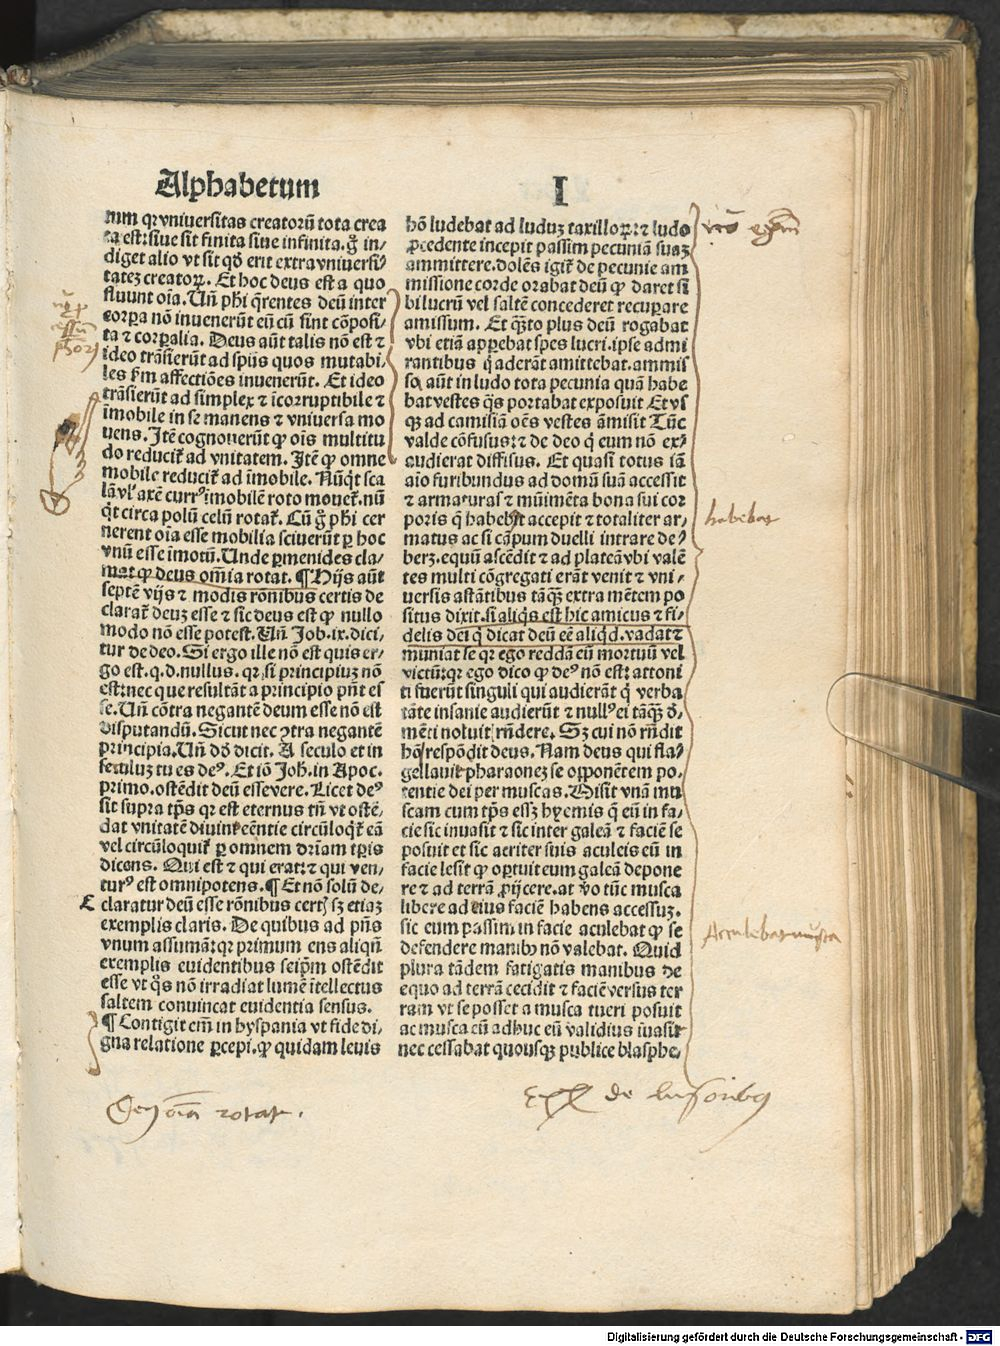 Alphabetum
I
tum qꝛ vniuersitas creatorũ tota crea
ta est: siue sit finita siue infinita. g̊ in⸗
diget alio vt sit qđ erit extra vniuersi⸗
tatez creatorꝝ. Et hoc deus est a quo
fluunt oĩa. Uñ phi q̃rentes deũ inter
corpꝛa nõ inuenerũt eũ cũ sint cõposi⸗
ta ⁊ corpꝛalia. Deus aũt talis nõ est ⁊
ideo trãsierũt ad spũs quos mutabi⸗
les s̃m affectiões inuenerũt. Et ideo
trãsierũt ad simplex ⁊ ĩcorruptibile ⁊
ĩmobile in se manens ⁊ vniuersa mo
uens. Jtẽ cognouerũt ꝙ oĩs multitu
do reducit̃ ad vnitatem. Jtẽ ꝙ omne
mobile reducit̃ ad ĩmobile. Nũq̃t sca
lã vl' axẽ curr⁹ ĩmobilẽ roto mouet̃. nũ
q̃t circa polũ celũ rotat̃. Cũ g̊ phi cer
nerent oĩa esse mobilia sciuerũt ꝑ hoc
vnũ esse ĩmotũ. Unde ꝑmenides cla⸗
mat ꝙ deus om̃ia rotat. ¶ Hijs aũt
septẽ vijs ⁊ modis rõnibus certis de
clarat̃ deuz esse ⁊ sic deus est ꝙ nullo
modo nõ esse potest. Uñ Job. ix. dici⸗
tur de deo. Si ergo ille nõ est quis er⸗
go est. q. d. nullus. qꝛ si principiuz nõ
est: nec que resultãt a principio pñt es
se. Uñ cõtra negantẽ deum esse nõ est
disputandũ. Sicut nec ꝯtra negantẽ
principia. Uñ dd̃ dicit. A seculo et in
seculuz tu es de⁹. Et iõ Joh. in Apoc.
primo. ostẽdit deũ esse vere. Licet de⁹
sit supra tp̃s qꝛ est eternus tñ vt ostẽ⸗
dat vnitatẽ diuine eẽntie circũloq̃t̃ eã
vel circũloquit̃ ꝑ omnem dr̃iam tp̃is
dicens. Qui est ⁊ qui erat: ⁊ qui ven⸗
tur⁹ est omnipotens. ¶ Et nõ solũ de⸗
E claratur deũ esse rõnibus cert⁊ sꝫ etiaz
exemplis claris. De quibus ad pñs
vnum assumã: qꝛ primum ens aliqñ
exemplis euidentibus seip̃m ostẽdit
esse vt q̊s nõ irradiat lumẽ ĩtellectus
saltem conuincat euidentia sensus.
¶ Contigit em̃ in hyspania vt fide di⸗
gna relatione ꝑcepi. ꝙ quidam leuis
hõ ludebat ad luduz taxilloꝝ: ⁊ ludo
ꝓcedente incepit passim pecuniã suaz
ammittere. dolẽs igit̃ de pecunie am
missione corde orabat deũ ꝙ daret si
bi lucrũ vel saltẽ concederet recupare
amissum. Et q̃to plus deũ rogabat
vbi etiã apꝑebat spes lucri. ipse admi
rantibus q̃ aderãt amittebat. ammis
so aũt in ludo tota pecunia quã habe
bat vestes q̃s portabat exposuit Et vs
qꝫ ad camisiã oẽs vestes ãmisit Tũc
valde cõfusus: ⁊ de deo q̃ eum nõ ex⸗
audierat diffisus. Et quasi totus iã
aĩo furibundus ad domũ suã accessit
⁊ armaturas ⁊ mũimẽta bona sui cor
poris q̃ habebãt accepit ⁊ totaliter ar⸗
matus ac si cãpum duelli intrare de⸗
berz. equũ ascẽdit ⁊ ad plateã vbi valẽ
tes multi cõgregati erãt venit ⁊ vni⸗
uersis astãtibus tãqꝫ extra mẽtem po
situs dixit. si aliq̃s est hic amicus ⁊ fi⸗
delis dei q̃ dicat deũ eẽ aliq̃d. vadat ⁊
muniat se qꝛ ego reddã eũ mortuũ vel
victũ: qꝛ ego dico ꝙ de⁹ nõ est: attoni
ti fuerũt singuli qui audierãt q̃ verba
tãte insanie audierũt ⁊ null⁹ ei tãqꝫ d̃⸗
mẽti noluit rñdere. Sꝫ cui nõ rñdit
hõ respõdit deus. Nam deus qui fla⸗
gellauit pharaonez se opponẽtem po⸗
tentie dei per muscas. Misit vnã mu
scam cum tp̃s essꝫ hyemis q̃ eũ in fa⸗
cie sic inuasit ⁊ sic inter galeã ⁊ faciẽ se
posuit et sic acriter suis aculeis eũ in
facie lesit ꝙ oꝑtuit eum galeã depone
re ⁊ ad terrã ꝓijcere. at ṽo tũc musca
libere ad eius faciẽ habens accessuz.
sic eum passim in facie aculebat ꝙ se
defendere manibꝫ nõ valebat. Quid
plura tãdem fatigatis manibus de
equo ad terrã cecidit ⁊ faciẽ versus ter
ram vt se posset a musca tueri posuit
ac musca eũ adhuc eũ validius ĩuasit
nec cessabat quousqꝫ publice blasphe⸗
habebat
Aculebat musca
Deus oĩa rotat.
de lusoribus
Digitalisierung gefördert durch die Deutsche Forschungsgemeinschaft - DFG